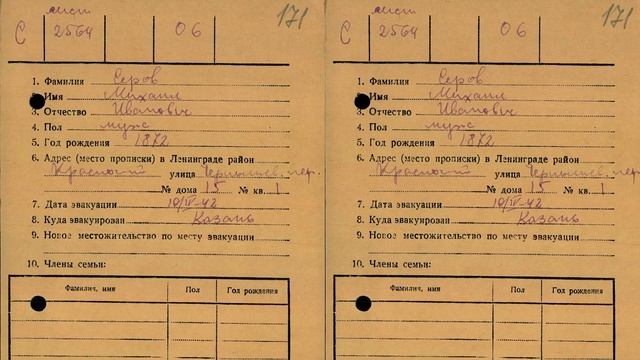 лист 171
С 2564 06
1. Фамилия Серов
2. Имя Михаил
3. Отчество Иванович
4. Пол муж
5. Год рождения 1872
6. Адрес (место прописки) в Ленинграде район
улица Чернышев. пер.
№ дома 15 № кв. 1
7. Дата эвакуации 10/IV-42
8. Куда эвакуирован Казань
9. Новое местожительство по месту эвакуации
10. Члены семьи:
Фамилия, имя Пол Год рождения
лист 171
С 2564 06
1. Фамилия Серов
2. Имя Михаил
3. Отчество Иванович
4. Пол муж
5. Год рождения 1872
6. Адрес (место прописки) в Ленинграде район
улица Чернышев. пер.
№ дома 15 № кв. 1
7. Дата эвакуации 10/IV-42
8. Куда эвакуирован Казань
9. Новое местожительство по месту эвакуации
10. Члены семьи:
Фамилия, имя Пол Год рождения